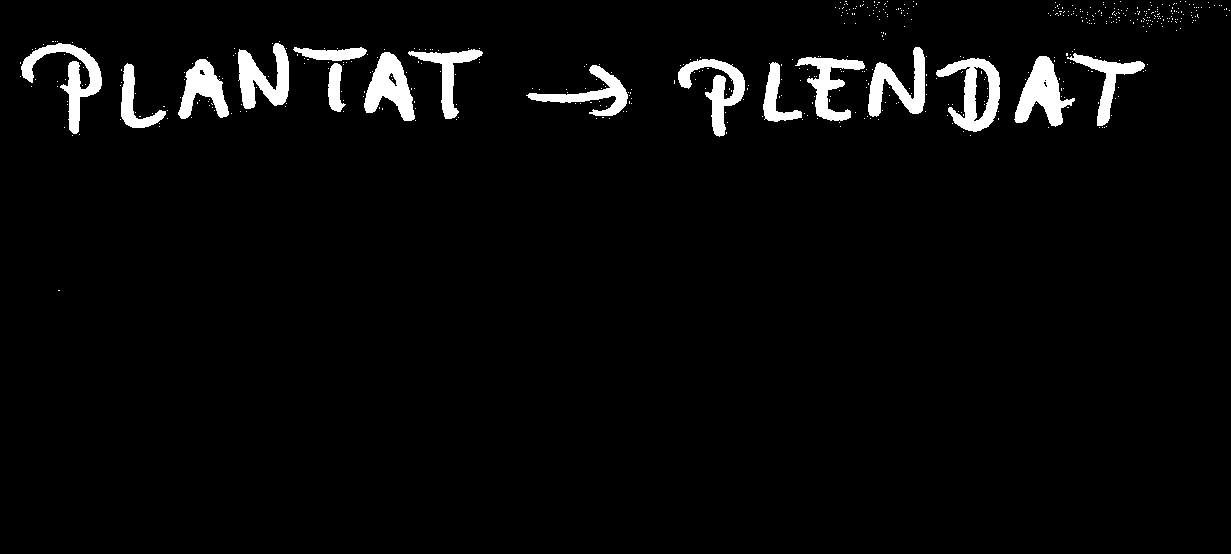 PLANTAT → PLENDAT